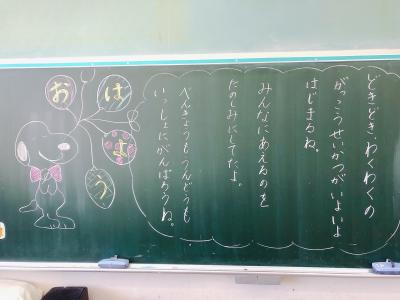 おはよう
どきどき、わくわくの
がっこうせいかつがいよいよ
はじまるね。
みんなにあえるのを
たのしみにしてたよ。
べんきょうも、うんどうも
いっしょにがんばろうね。